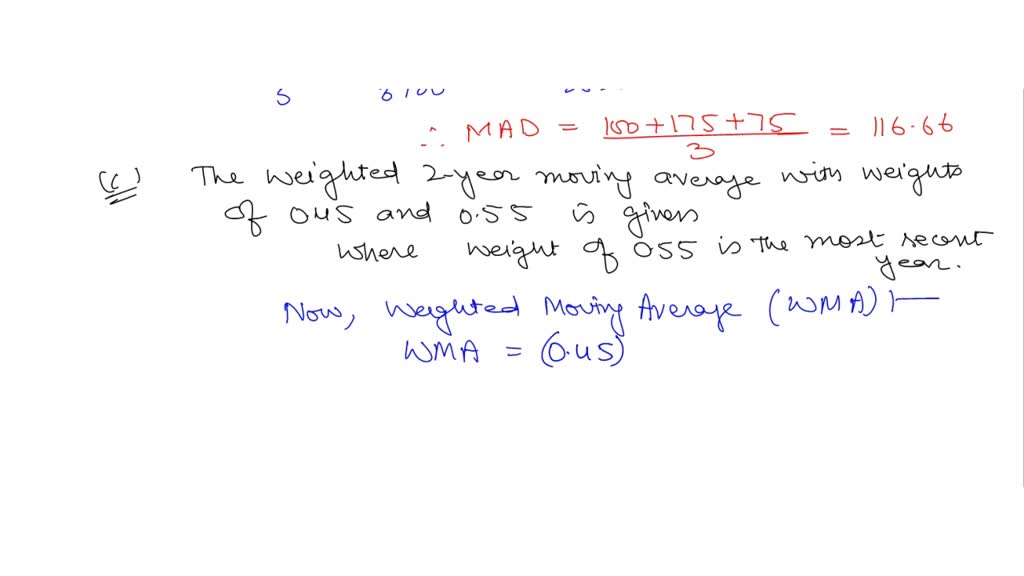 5
∴ MAD = 100+175+75 / 3 = 116.66
(c) The weighted 2-year moving average with weights
of 0.45 and 0.55 is given
where weight of 055 is the most recent
year.
Now, Weighted Moving Average (WMA) :—
WMA = (0.45)